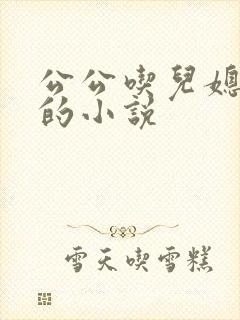 公公喫兒媳
的小說
雪天喫雪糕